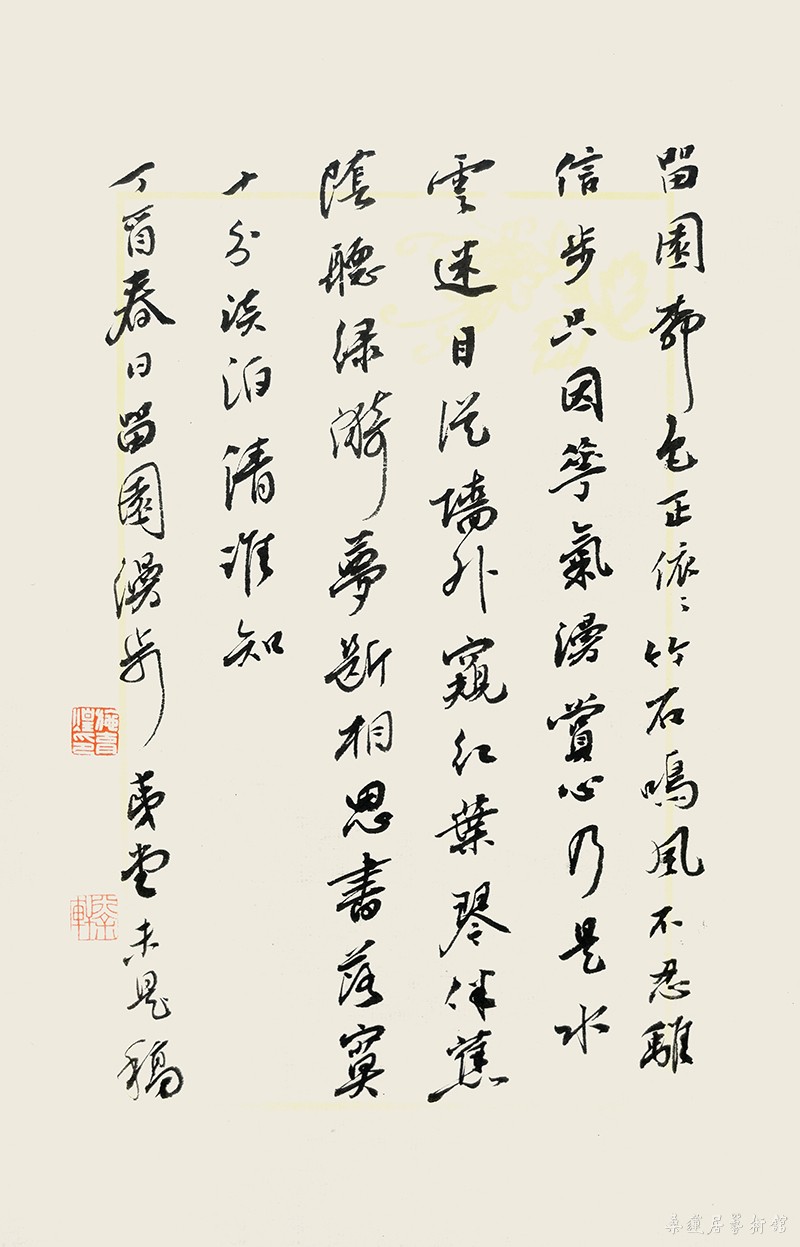 留園郭色正依〻竹石鳴風不忍離
信步只因花氣漫賞心乃是水
雲迷目從牆外窺紅葉琴伴蕉
蔭聽綠漪夢斷相思書落寞
十分淡泊清誰知
丁酉春日留園漫步 堂未是稿
桑蓮居藝術館